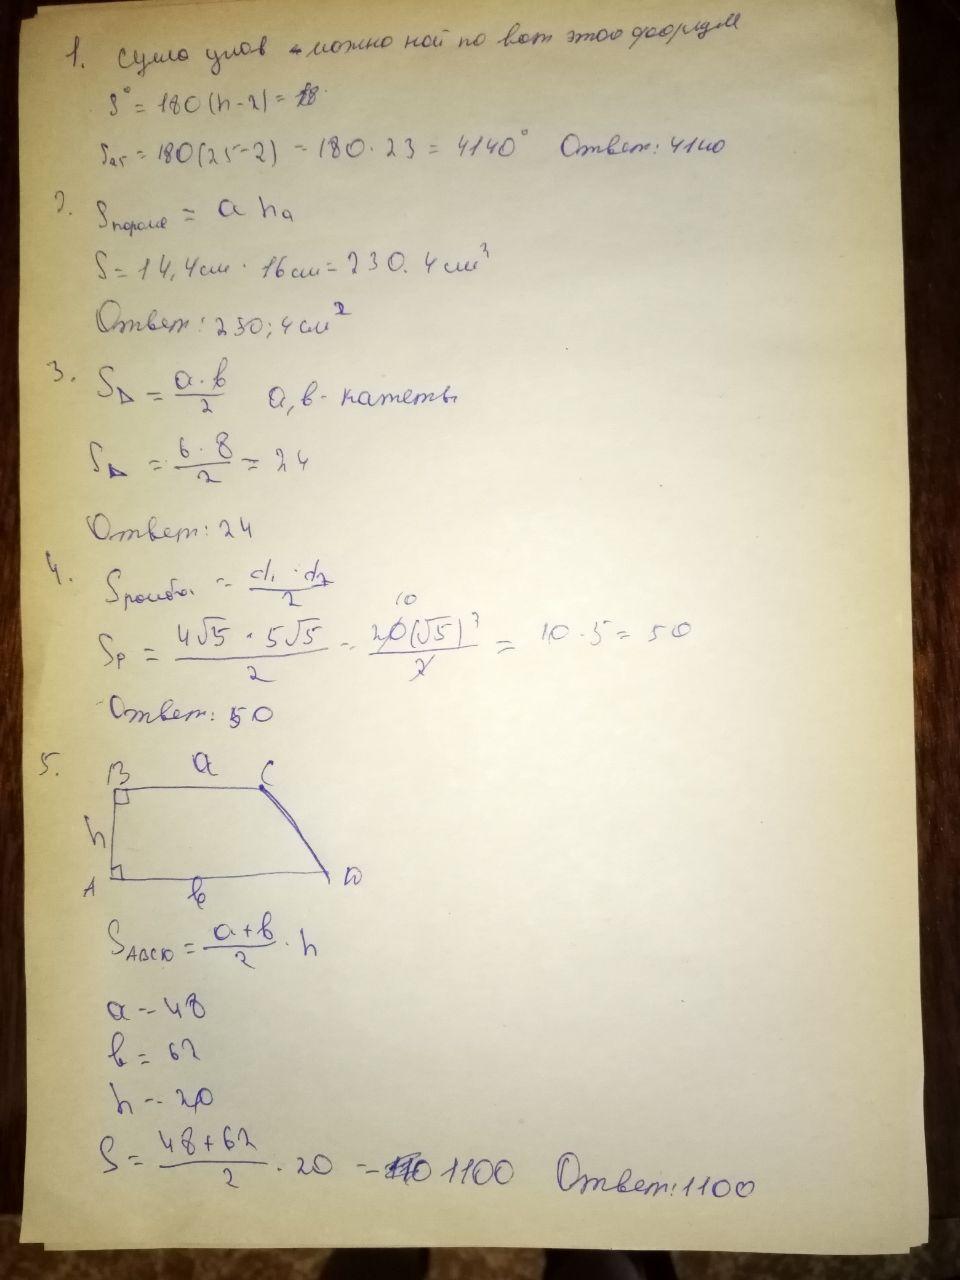 1. Сумма углов можно най по вот этой формуле
S° = 180(n-2) =
S₂₅ = 180(25-2) = 180·23 = 4140° Ответ: 4140
2. Sпарале = a hₐ
S = 14,4см · 16см = 230.4см²
Ответ: 230,4см²
3. S△ = a·b/2 a,b - катеты
S△ = 6·8/2 = 24
Ответ: 24
4. Sромба = d₁·d₂/2
Sр = 4√5 · 5√5/2 = 20(√5)²/2 = 10·5 = 50
10
Ответ: 50
5. B a C
h
A b D
SABCD = a+b/2 · h
a = 48
b = 62
h = 20
S = 48+62/2 · 20 = 1100 Ответ: 1100